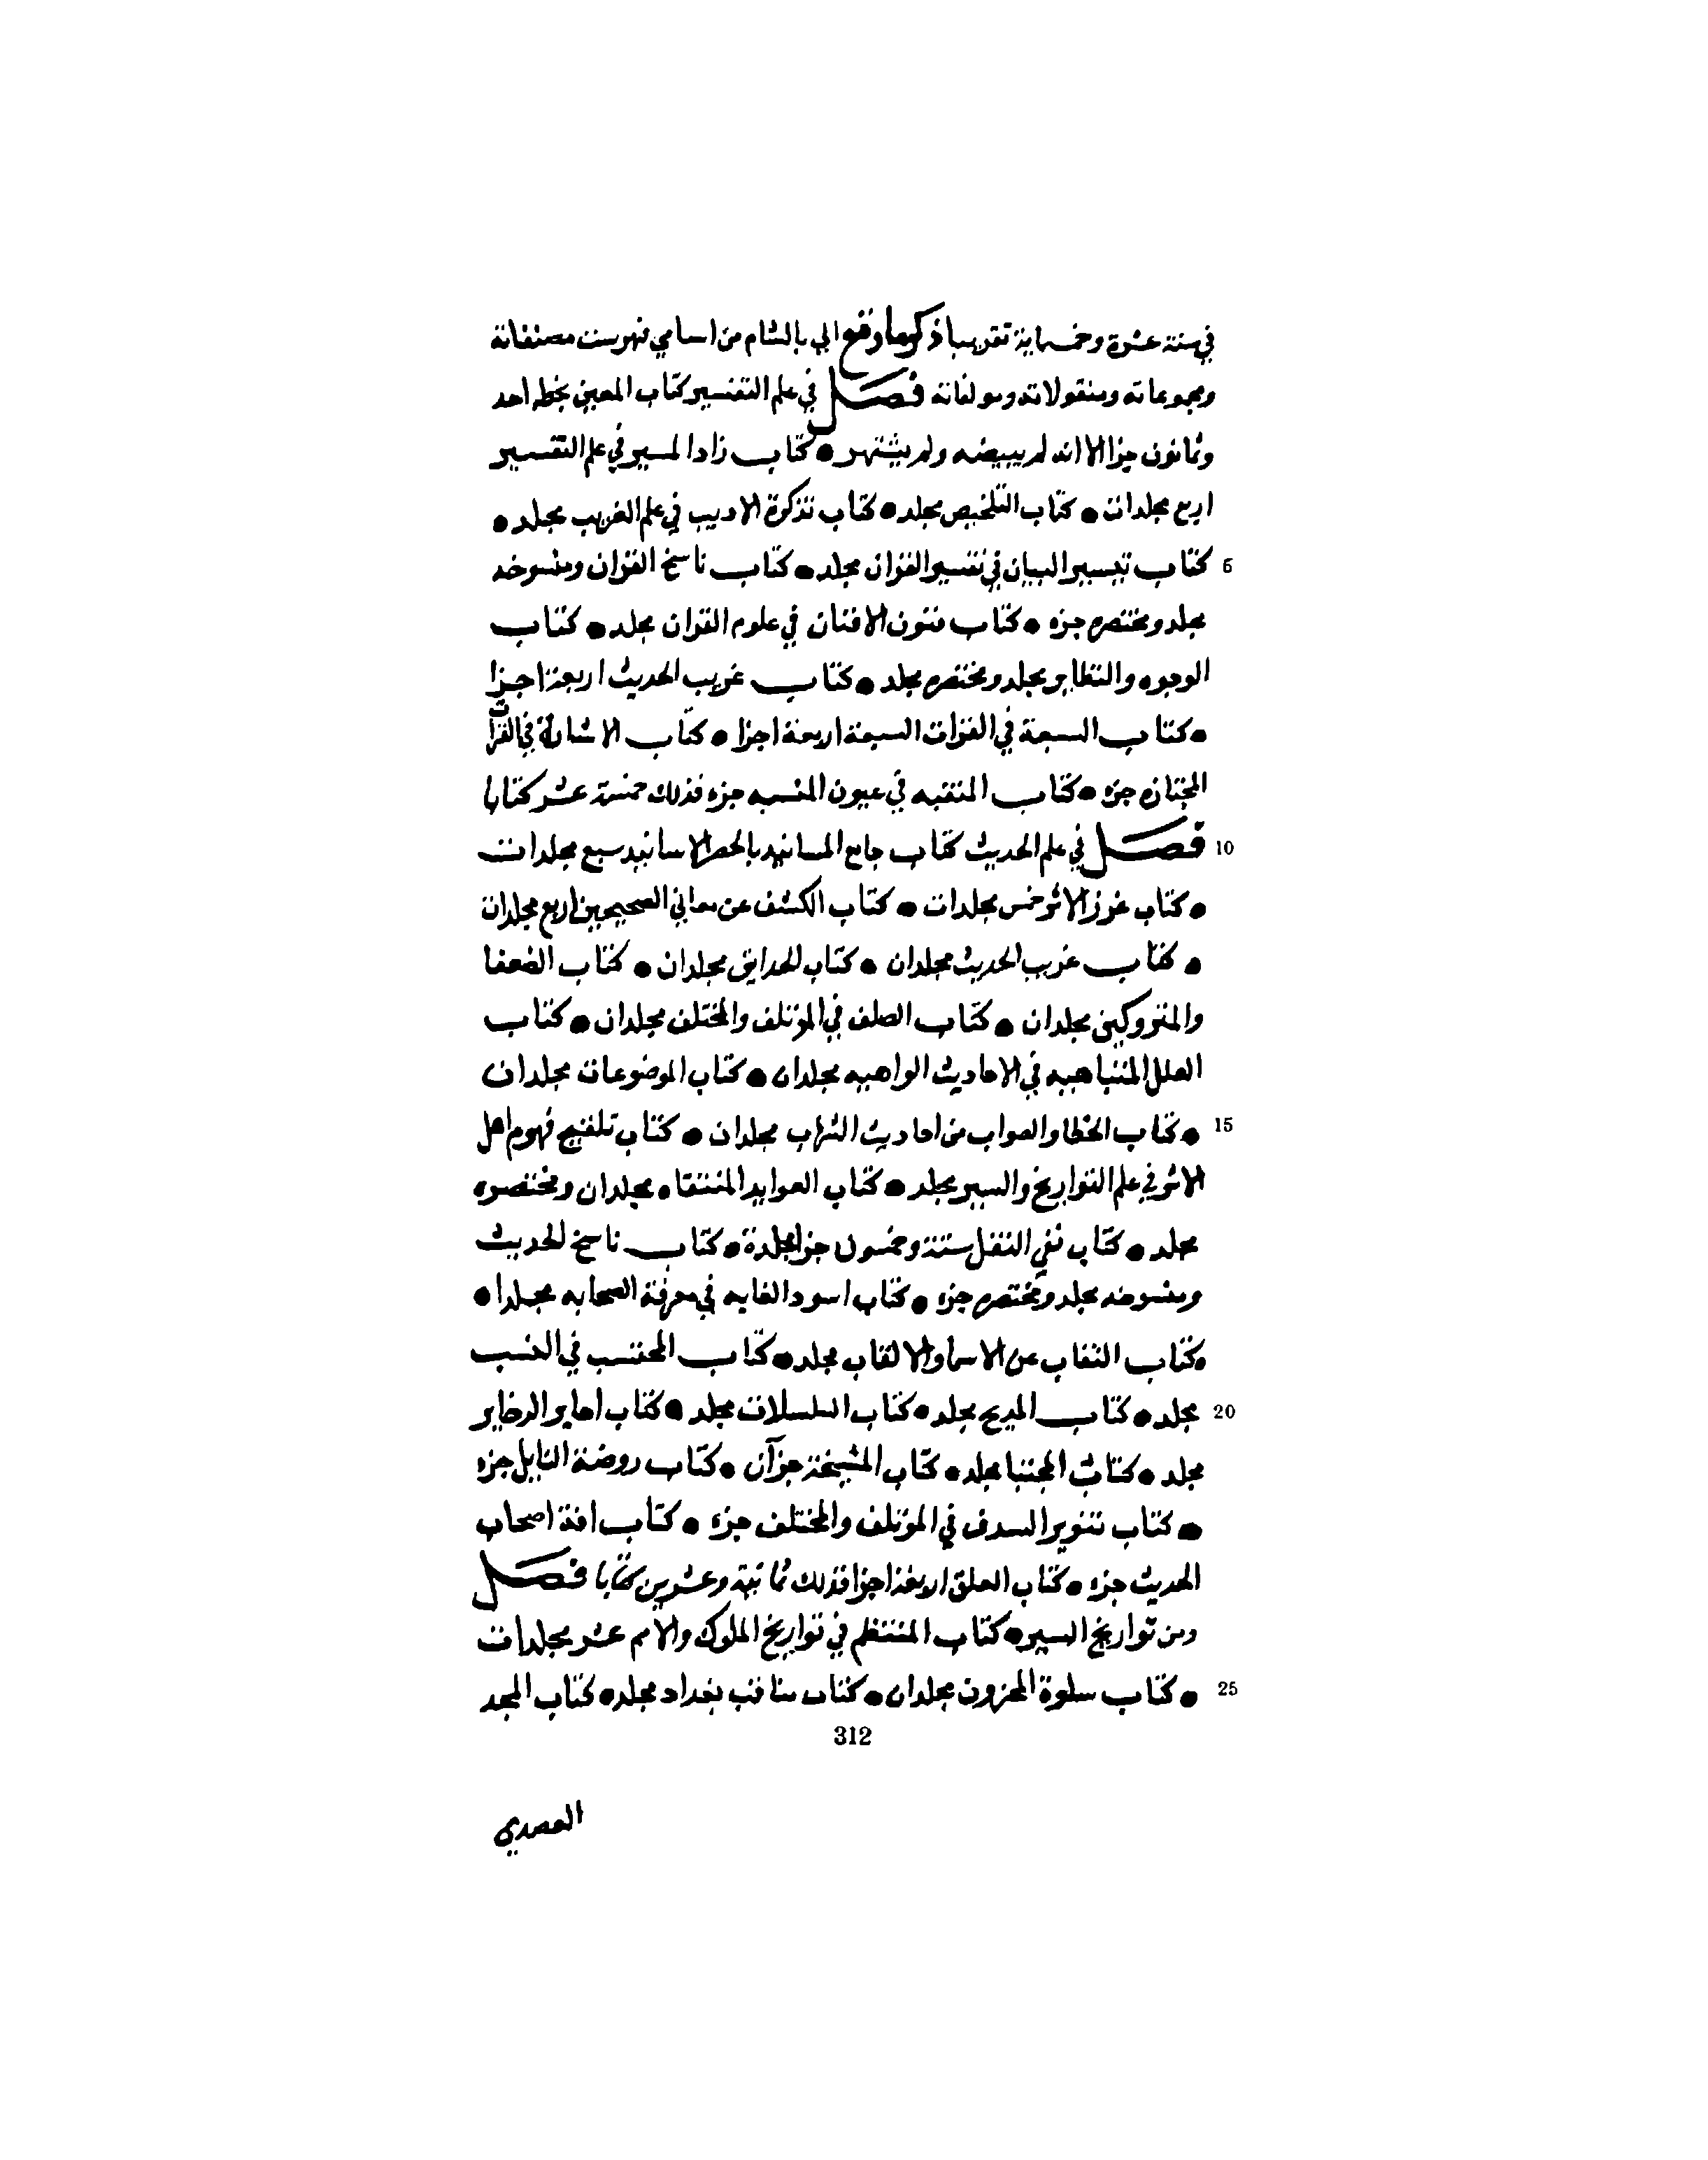 في سنة عشرة وخمسماية تقريبا ذكر ما وقع الي بالشام من اسامي فهرست مصنفاته
ومجموعاته ومنقولاته ومولفاته فصل في علم التفسير كتاب المعين بخطه احد
وثمانون جزا الا انه لم يبيضه ولم يشتهر ● كتاب زاد المسير في علم التفسير
اربع مجلدات ● كتاب التلخيص مجلد ● كتاب تذكرة الاديب في علم الغريب مجلد ●
5 كتاب تيسير البيان في تفسير القران مجلد ● كتاب ناسخ القران ومنسوخه
مجلد ومختصره جزء ● كتاب فنون الافنان في علوم القران مجلد ● كتاب
الوجوه والنظاير مجلد ومختصره مجلد ● كتاب غريب الحديث اربعة اجزا
● كتاب السبعة في القرات السبعة اربعة اجزا ● كتاب الاشارة في القرات
المختاره جزء ● كتاب المنتبه في عيون المشبه جزء فذلك خمسة عشر كتابا
10 فصل في علم الحديث كتاب جامع المسانيد بالحصر الاسانيد سبع مجلدات
● كتاب غرز الاثر خمس مجلدات ● كتاب الكشف عن معاني الصحيحين اربع مجلدات
● كتاب غريب الحديث مجلدان ● كتاب الحدايق مجلدان ● كتاب الضعفا
والمتروكين مجلدان ● كتاب الصلف في المؤتلف والمختلف مجلدان ● كتاب
العلل المتناهيه في الاحاديث الواهيه مجلدان ● كتاب الموضوعات مجلدان
15 ● كتاب الخطا والصواب من احاديث الشهاب مجلدان ● كتاب تلقيح فهوم اهل
الاثر في علم التواريخ والسير مجلد ● كتاب الفوايد المنتقاه مجلدان ومختصره
مجلد ● كتاب نفي النقل ستة وخمسون جزا مجلدة ● كتاب ناسخ الحديث
ومنسوخه مجلد ومختصره جزء ● كتاب اسود الغابه في معرفة الصحابه مجلدا ●
● كتاب النقاب عن الاسما والالقاب مجلد ● كتاب المحتسب في النسب
20 مجلد ● كتاب المديح مجلد ● كتاب المسلسلات مجلد ● كتاب اخاير الذخاير
مجلد ● كتاب المجتبا مجلد ● كتاب المشيخة جزآن ● كتاب روضة الناقل جزء
● كتاب تنوير السدف في المؤتلف والمختلف جزء ● كتاب افة اصحاب
الحديث جزء ● كتاب العلق اربعة اجزا فذلك ثمانية وعشرين كتابا فصل
ومن تواريخ السير ● كتاب المنتظم في تواريخ الملوك والامم عشر مجلدات
25 ● كتاب سلوة المحزون مجلدان ● كتاب مناقب بغداد مجلد ● كتاب المجد
312